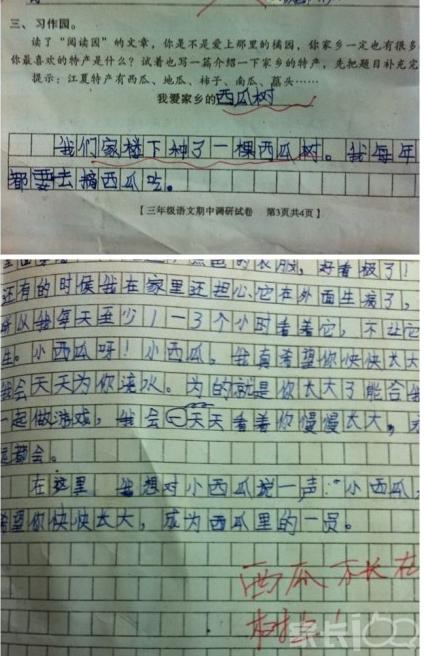 三、习作园。
读了“阅读园”的文章，你是不是爱上那里的橘园，你家乡一定也有很多
你最喜欢的特产是什么？试着也写一篇介绍一下家乡的特产，先把题目补充完
提示：江夏特产有西瓜、地瓜、柿子、南瓜、藠头……
我爱家乡的西瓜树
我们家楼下种了一棵西瓜树。我每年
都要去摘西瓜吃。
【三年级语文期中调研试卷 第3页共4页】
色的衣服，好看极了！
还有的时候我在家里还担心它在外面生病了，
所以我每天至少1一3个小时看着它，不让它
生。小西瓜呀！小西瓜，我真希望你快快长大
我会天天为你浇水。为的就是你长大了能合我
一起做游戏，我会天天看着你慢慢长大，永
远都会。
在这里，我想对小西瓜说一声：“小西瓜，
希望你快快长大，成为西瓜里的一员。
西瓜不长在
树上